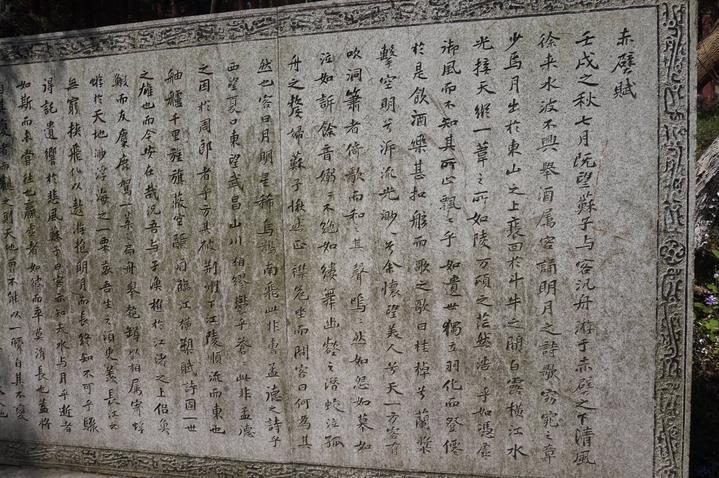 赤壁賦
壬戌之秋七月既望蘇子与客汎舟游于赤壁之下清風
徐来水波不興舉酒属客誦明月之詩歌窈窕之章
少焉月出於東山之上裵回於斗牛之間白露横江水
光接天縦一葦之所如陵万頃之茫然浩〻乎如憑虚
御風而不知其所止飄〻乎如遺世獨立羽化而登僊
於是飲酒樂甚扣舷而歌之歌曰桂棹兮蘭槳
擊空明兮泝流光渺〻兮余懷望美人兮天一方客有
吹洞簫者倚歌而和之其聲嗚〻然如怨如慕如
泣如訴餘音嫋〻不絶如縷舞幽壑之潜蛟泣孤
舟之嫠婦蘇子愀然正襟危坐而問客曰何為其
然也客曰月明星稀烏鵲南飛此非曹孟德之詩乎
西望夏口東望武昌山川相繆鬱乎蒼〻此非孟德
之困於周郎者乎方其破荆州下江陵順流而東也
舳艫千里旌旗蔽空釃酒臨江横槊賦詩固一世
之雄也而今安在哉況吾与子漁樵於江渚之上侣魚
鰕而友麋鹿駕一葉之扁舟舉匏樽以相属寄蜉
蝣於天地渺浮海之一粟哀吾生之須臾羡長江之
無窮挾飛仙以遨游抱明月而長終知不可乎驟
得託遺響於悲風蘇子曰客亦知夫水与月乎逝者
如斯而未嘗往也贏虚者如彼而卒莫消長也盖将
觀之則天地曾不能以一瞬自其不變